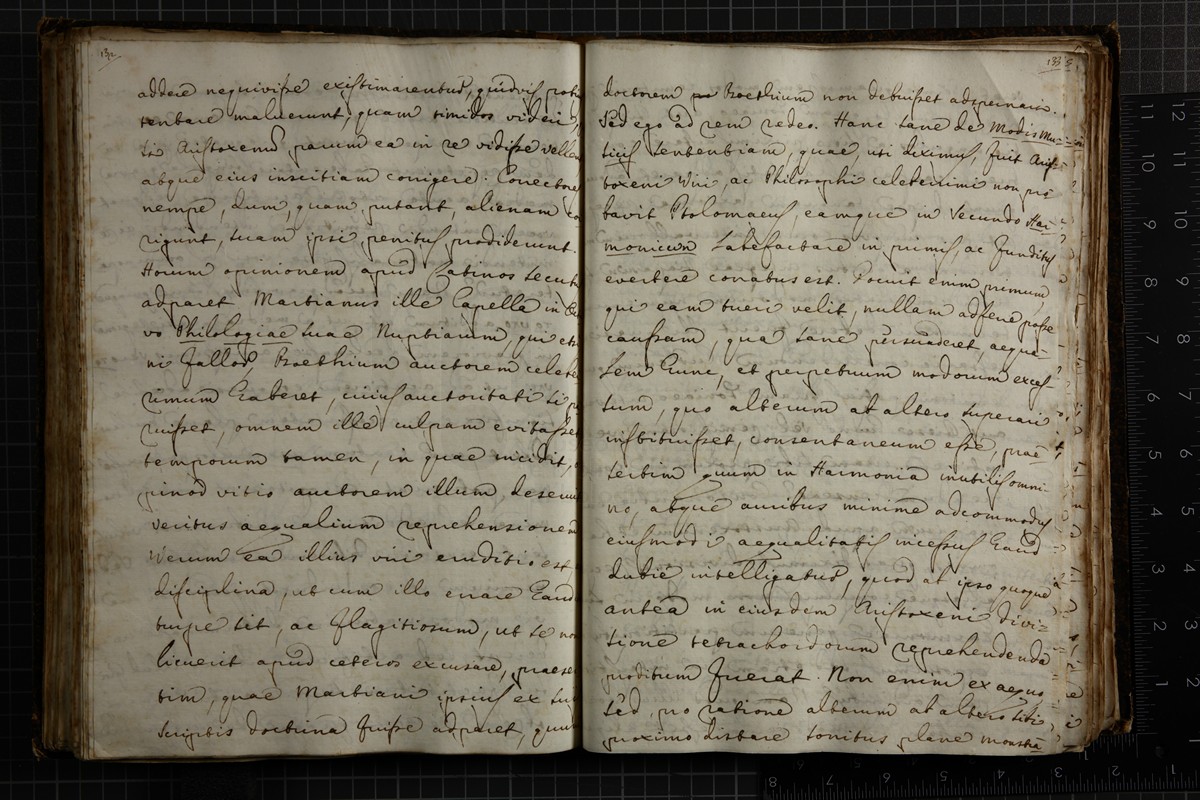 132
addere nequivisse existimarentur, quidvis
tentare maluerunt, quam timidos videri,
Aristoxenum parum ea in re vidisse
absque eius inscitiam corrigere. Correctore
nempe, dum, quam putant, alienam
rigunt, suam ipsi penitus prodiderunt.
Horum opinionem apud Latinos
adparet Martianus ille Capella in
vo Philologiae suae Nuptiarum, qui
ni fallor, Boethium auctorem
rimum haberet, cuius auctoritati si
ruisset, omnem ille culpam evitasset
temporum tamen, in quae incidit,
vitio auctorem illum
veritus aequalium reprehensionem
Verum ea illius viri eruditio est
disciplina, ut cum illo errare
turpe sit, ac flagitiosum, ut se
licuerit apud ceteros excusare,
tim, quae Martiani ipsius ex
scriptis doctrina fuisse adparet,
133
doctorem Boethium non debuisset adspernari.
Sed ego ad rem redeo. Hanc sane de Modis Mu-
sicis sententiam, quae, uti diximus, fuit Aris-
toxeni Viri, ac Philosophi celeberrimi non pro
bavit Ptolomaeus, eamque in Secundo Har-
monicum labefactare in primis, ac funditus
evertere conatus est. Docuit enim primum
qui eam tueri velit, nullam adferre posse
caussam, qua sane persuaderet, aequa-
lem hunc, et perpetuum modorum exces-
sum, quo alterum ab altero superari
instituisset, consentaneum esse, prae-
sertim quum in Harmonia inutilis omni-
no, absque auribus minime adcommodus
eiusmodi aequalitatis incessus haud
dubie intelligatur, quod ab ipso quoque
antea in eiusdem Aristoxeni divi-
sione tetrachordorum reprehendenda
proditum fuerat. Non enim ex aequo
sed pro ratione alterum ab altero sibi
proximo distare sonitus plane monstra